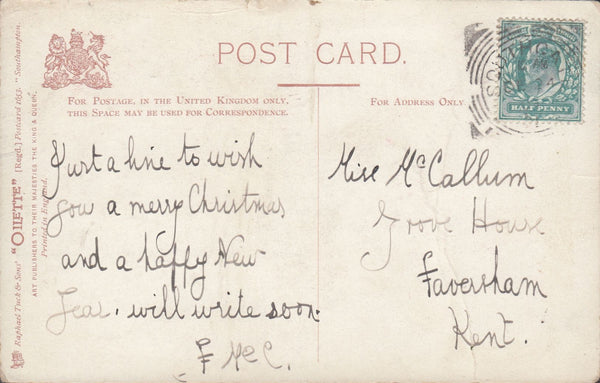 POST CARD.
FOR POSTAGE, IN THE UNITED KINGDOM ONLY,
THIS SPACE MAY BE USED FOR CORRESPONDENCE.
FOR ADDRESS ONLY
HALF PENNY
Just a line to wish
you a merry Christmas
and a happy New
Year. will write soon.
F McC.
Miss McCallum
Grove House
Faversham
Kent.
Raphael Tuck & Sons' "OILETTE" [Regd.] Postcard 1653. "Southampton.
ART PUBLISHERS TO THEIR MAJESTIES THE KING & QUEEN.
Printed in England.